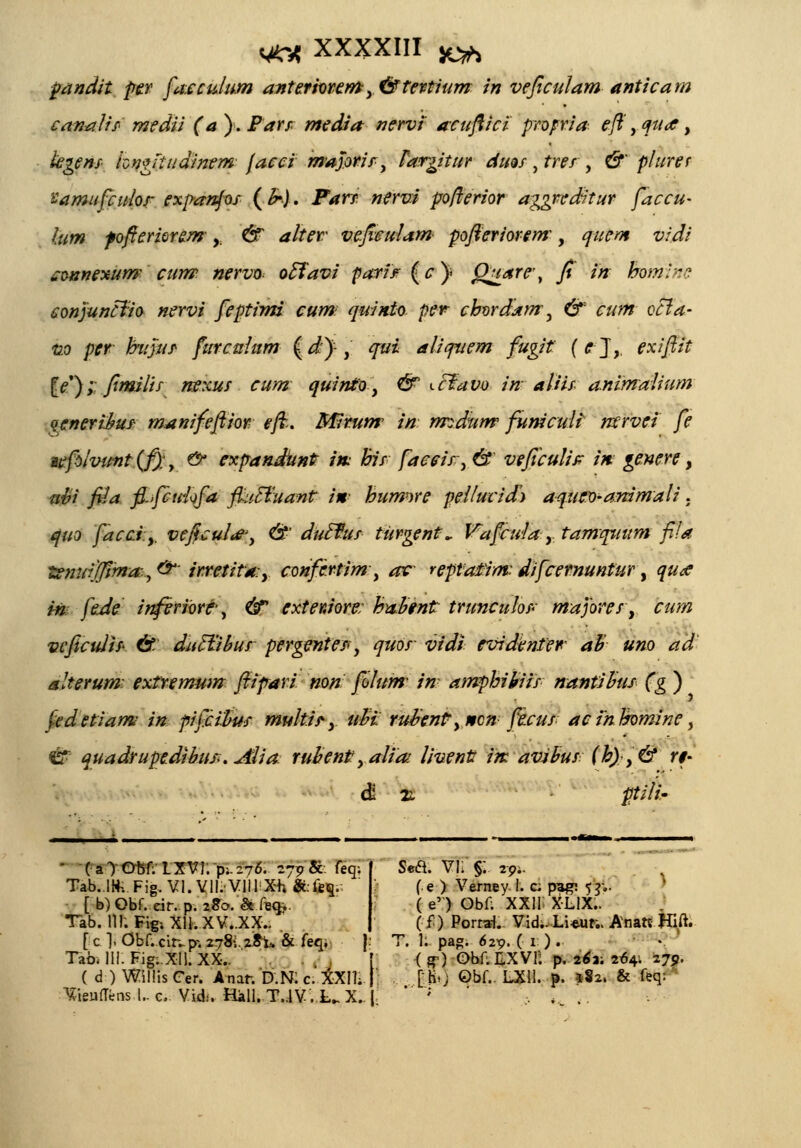 XXXXIII
pandit per facculum anteriorem, & tertium in veficulam anticam
canalis medii (a). Pars media nervi acuftici propria eft, quæ,
legens longitudinem facci majoris, largitur duos, tres, & plures
ramufculos expanfos (b). Pars nervi pofterior aggreditur faccu-
lum pofteriorem, & alter veficulam pofteriorem, quem vidi
connexum cum nervo octavi paris (c). Quare, fi in homine
conjunctio nervi feptimi cum quinto per chordam, & cum octa-
vo per hujus furculum (d), qui aliquem fugit (e], exiftit
[e'); fimilis nexus cum quinto, & octavo in aliis animalium
generibus manifeftior eft. Mirum in modum funiculi nervei fe
refolvunt (f), & expandunt in his faccis, & veficulis in genere,
ubi fila flofculofa fluctuant in humore pellucido aqueo-animali;
quo facci, veficulæ, & ductus turgent. Vafcula, tamquum fila
tenuiffima, & irretita, confertim, ac reptatim difcernuntur, quæ
in fede inferiore, & exteriore habent trunculos majores, cum
veficulis & ductibus pergentes, quos vidi evidenter ab uno ad
alterum extremum ftipari non folum in amphibiis nantibus (g),
fed etiam in pifcibus multis, ubi rubent, non fecus ac in homine,
& quadrupedibus. Alia rubent, alia livent in avibus (h), & re-
d 2 ptili-
(a) Obf. LXVI. p. 276. 279 & feq.
Tab. III. Fig. VI. VII. VIII XII & feq.
[b) Obf. cit. p. 280. & feq.
Tab. III. Fig. XII. XV. XX.
[c]. Obf. cit. p. 278. 281. & feq.
Tab. III. Fig. XII. XX.
(d) Willis Cer. Anat. D.N. c. XXII.
Vieuffens l. c. Vid. Hall. T. IV. L. X.
Sect. VI. §. 29.
(e) Verney l. c. pag. 53.
(e') Obf. XXII XLIX.
(f) Portal. Vid. Lieut. Anat. Hift.
T. I. pag. 629. (1).
(g) Obf. LXVII. p. 262. 264. 279.
[h) Obf. LXII. p. 182. & feq.